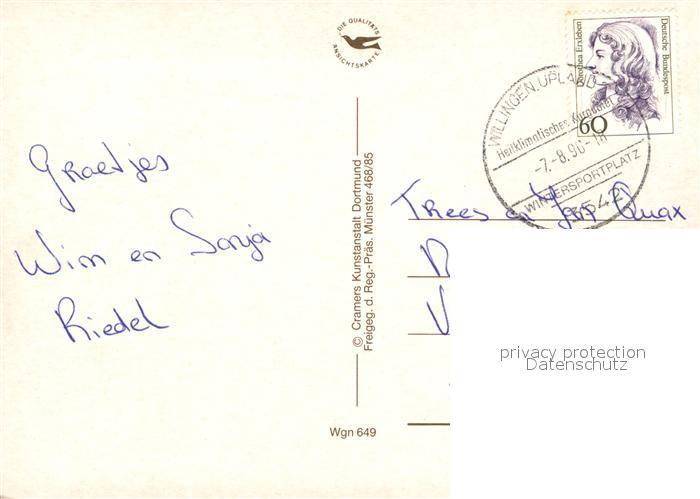 Graetjes
Wim en Sonja
Riedel
DIE QUALITÄTS
ANSICHTSKARTE
© Cramers Kunstanstalt Dortmund
Freigeg. d. Reg.-Präs. Münster 468/85
Wgn 649
Dorothea Erxleben
Deutsche Bundespost
60
WILLINGEN, UPLAND
Heilklimatischer Kurort
-7.-8.90-1
WINTERSPORTPLATZ
3542
Trees en Quax
privacy protection
Datenschutz